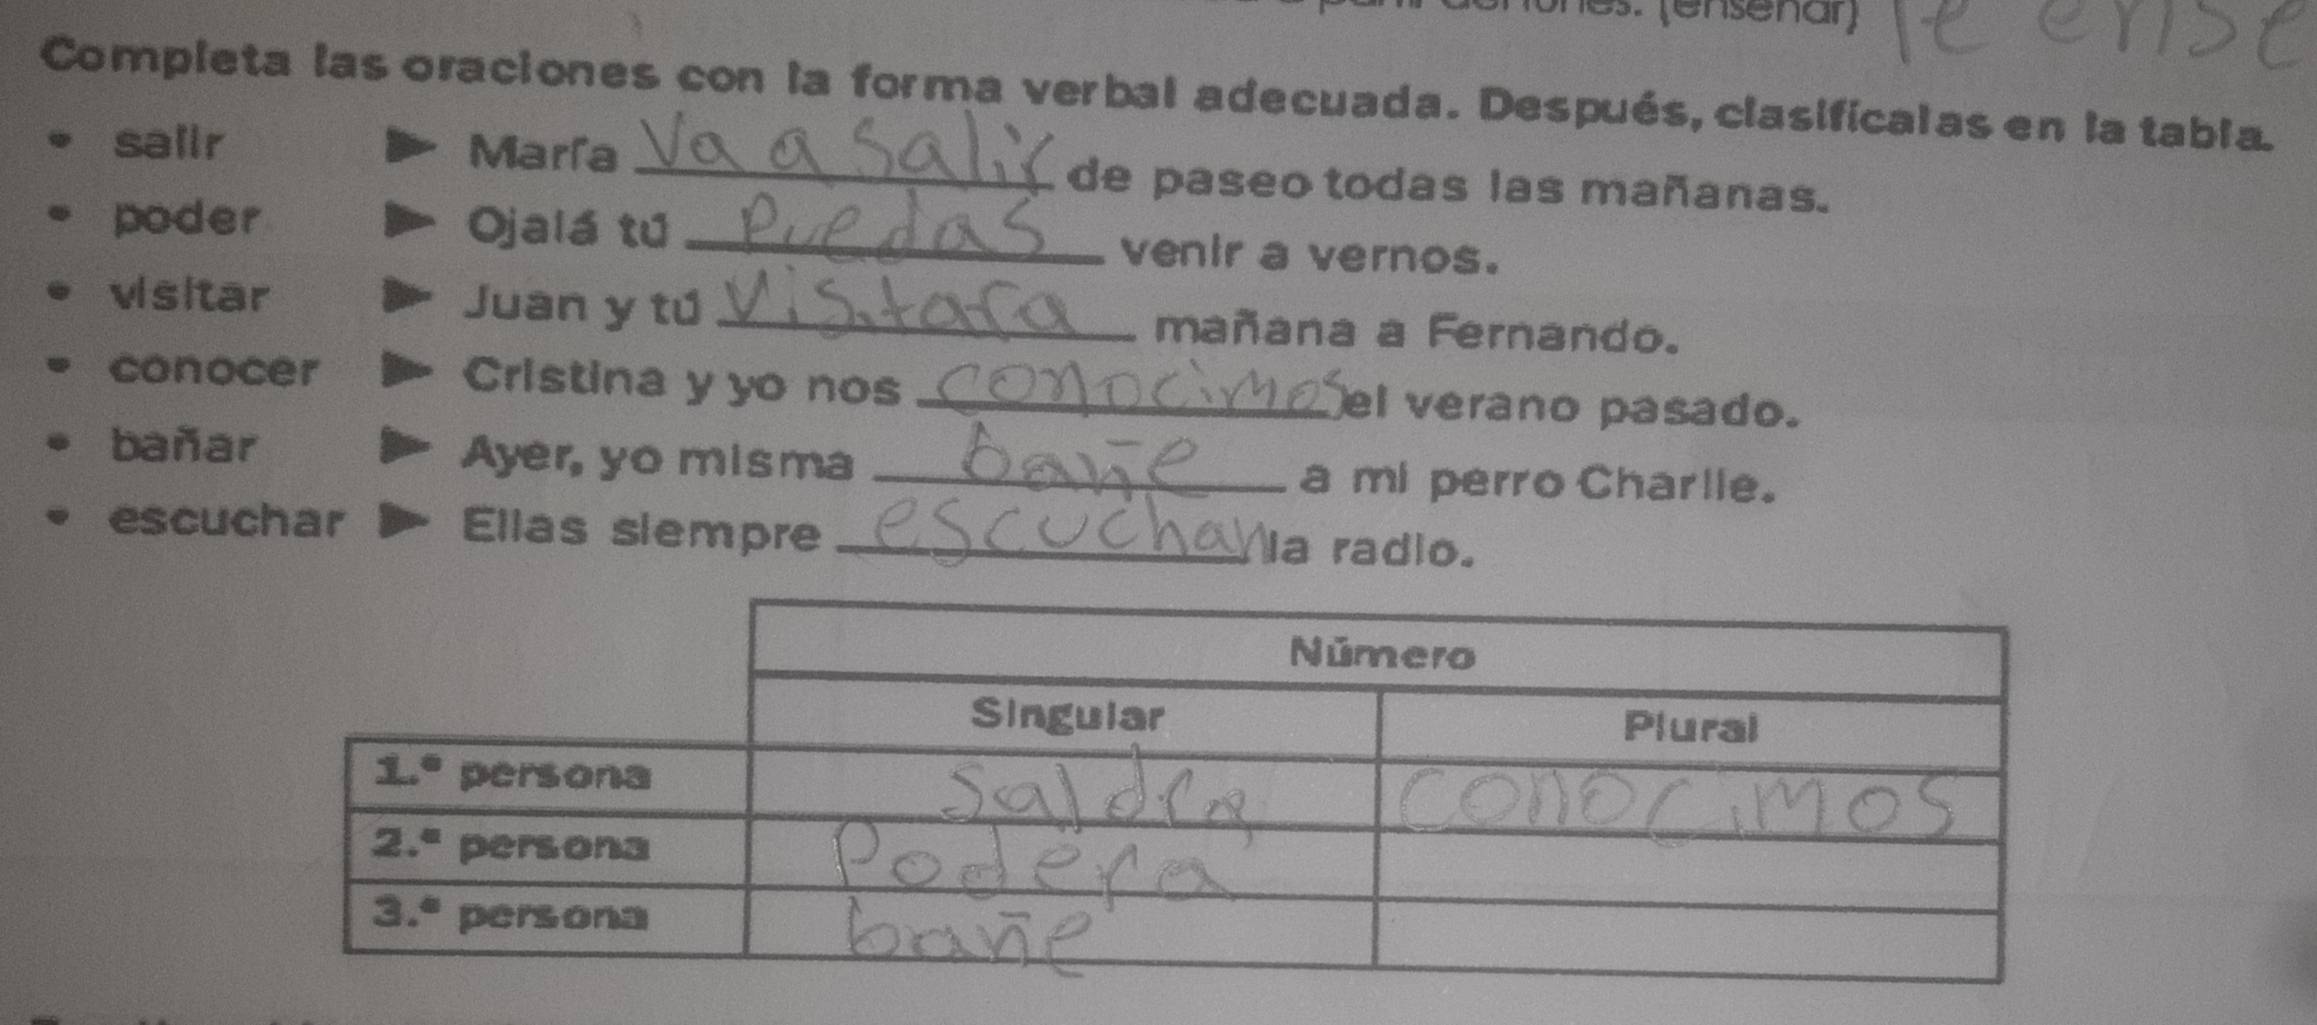 (enseñar) le ense
Completa las oraciones con la forma verbal adecuada. Después, clasifícalas en la tabla.
• salir ▶ María va a salir de paseo todas las mañanas.
• poder ▶ Ojalá tú Puedas venir a vernos.
• visitar ▶ Juan y tú Visitara mañana a Fernando.
• conocer ▶ Cristina y yo nos conocimos el verano pasado.
• bañar ▶ Ayer, yo misma bañe a mi perro Charlie.
• escuchar ▶ Ellas siempre escuchan la radio.
Número
Singular Plural
1.ª persona Saldra conocimos
2.ª persona Podera
3.ª persona bañe